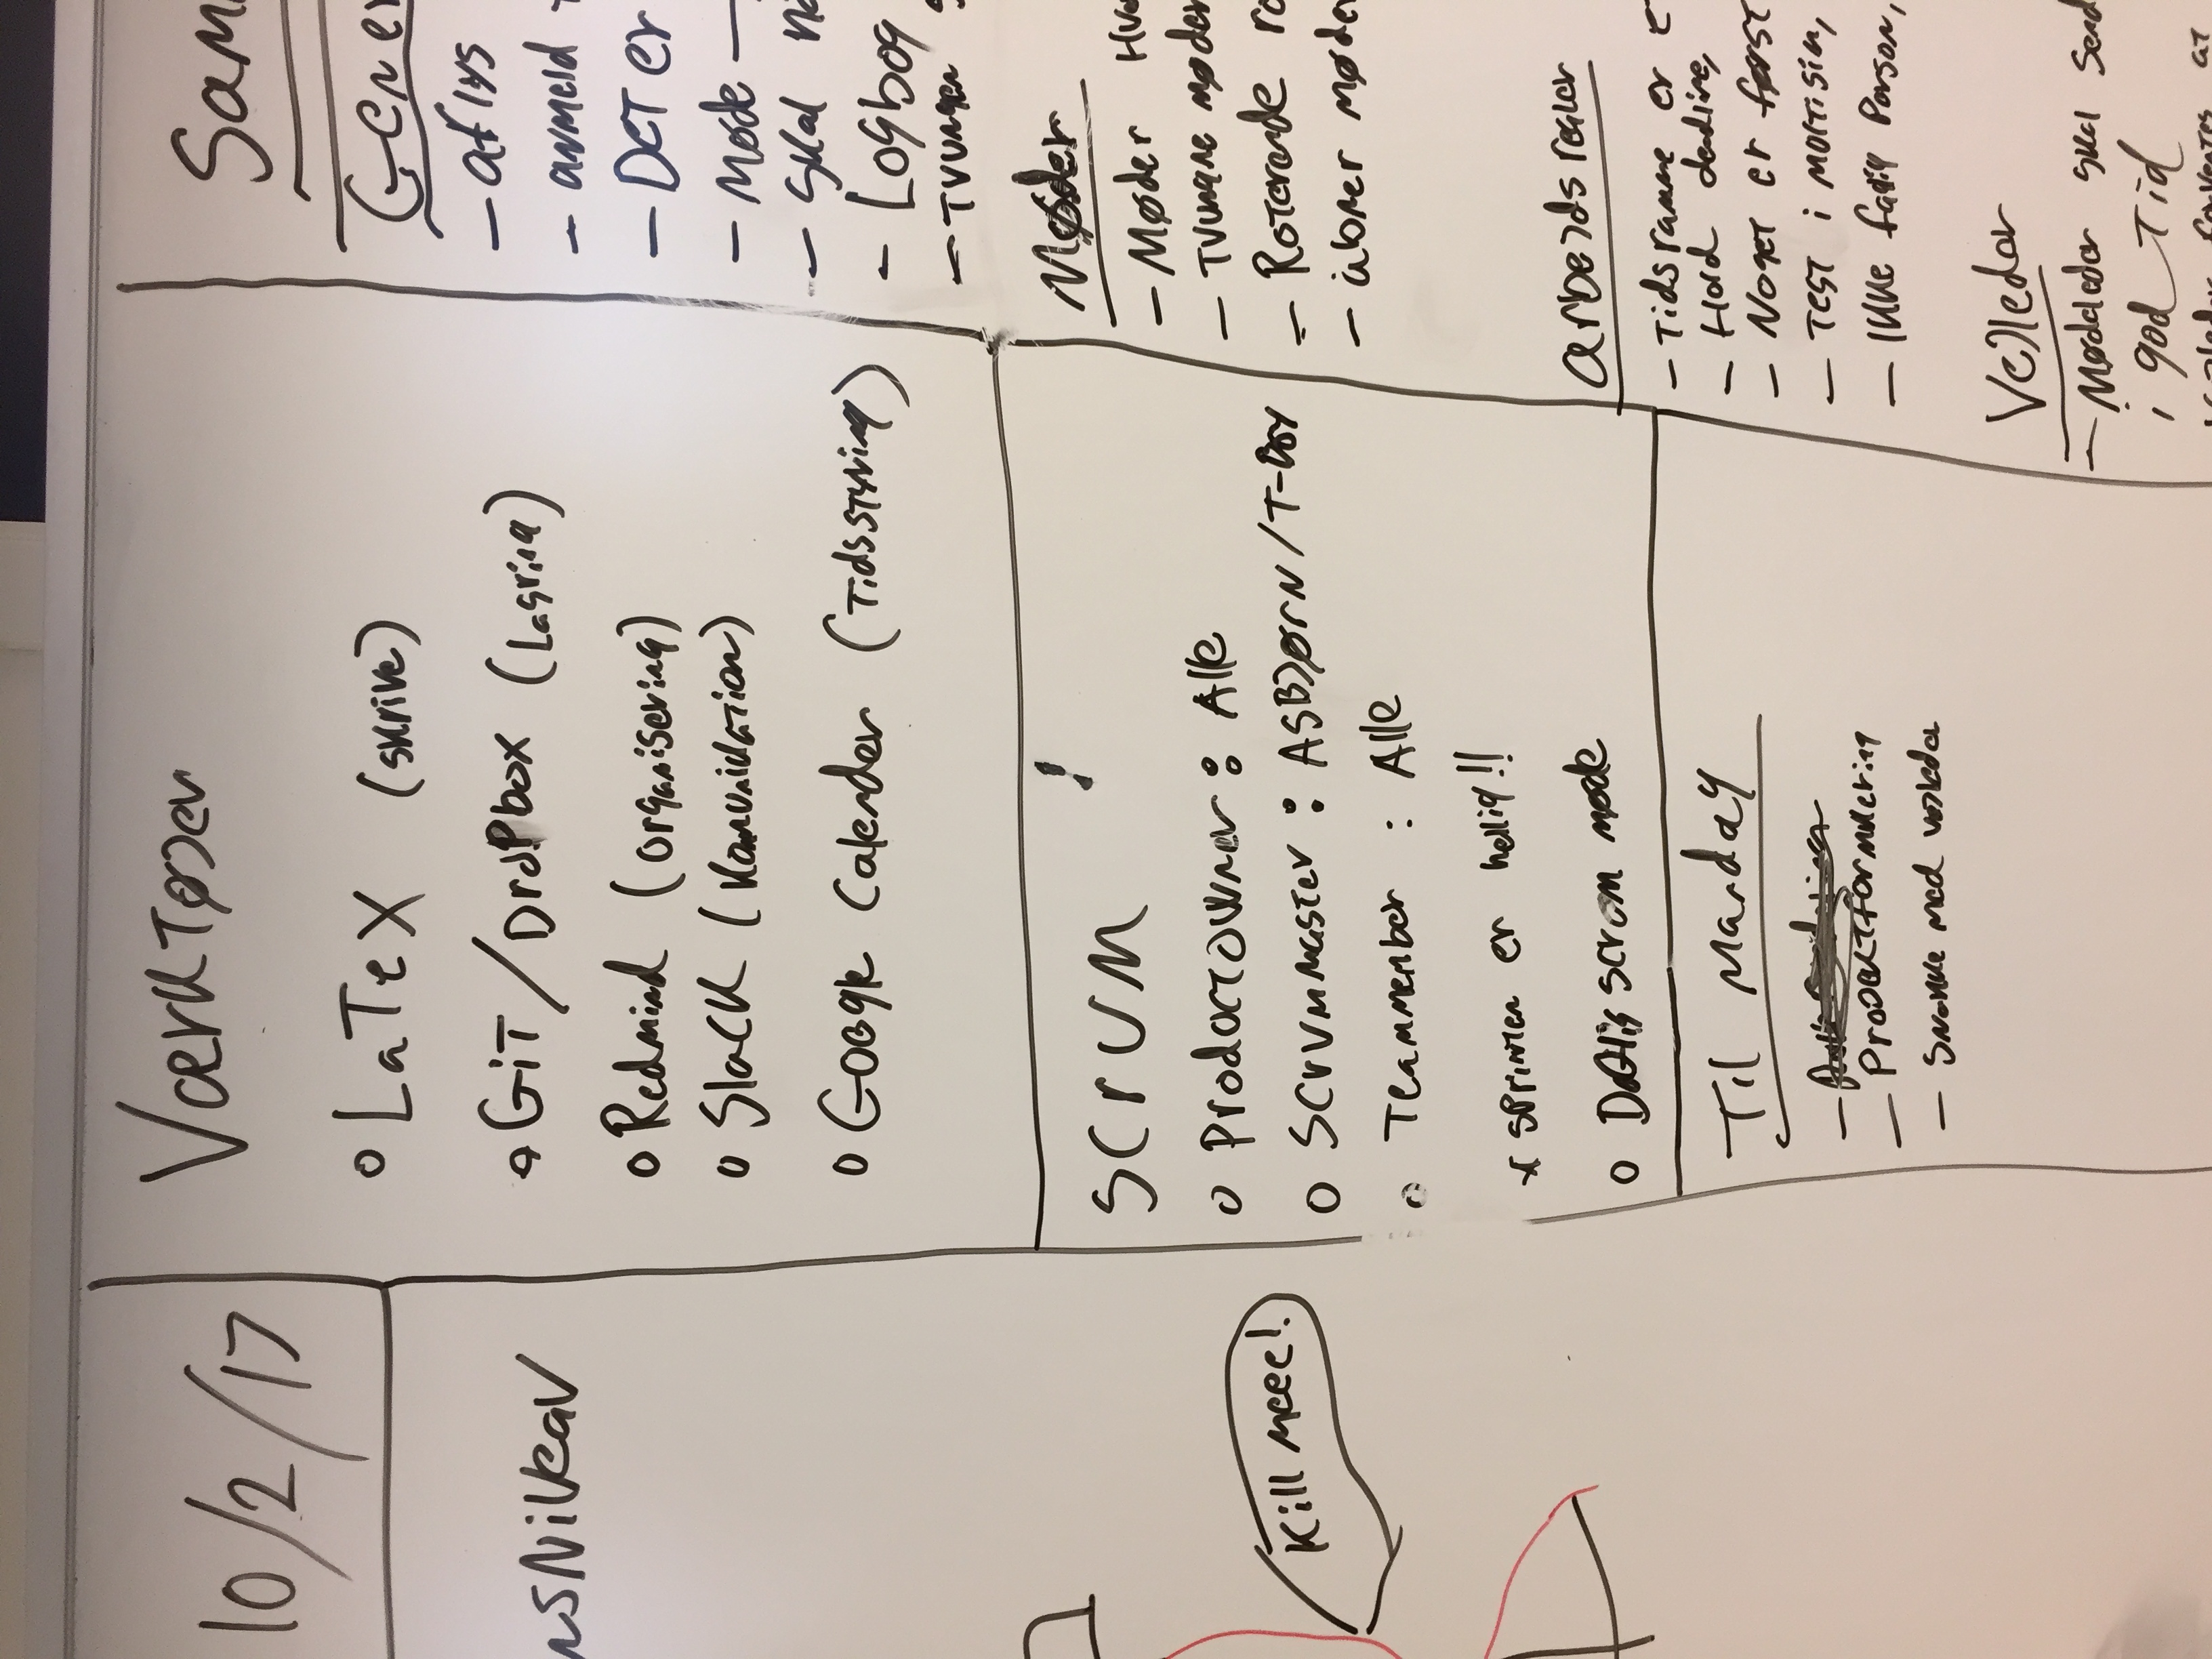 10/2/17
nsNiveau
Kill meee!
Værktøjer
LaTeX (skrive)
GiT/Dropbox (Lagring)
Redmind (organisering)
Slack (Komunikation)
Google Calender (Tidsstyring)
!
SCrUM
ProductOwner: Alle
Scrummaster: ASBJørn/T-Boy
Teammember : Alle
* Sprinten er hellig!!
Daglig scrum møde
Til Mandag
- Projektformulering
- Snakke med vejleder
Sam
Gener
- aflys
- anmeld
- DET er
- Møde
- Skal
- Logbog
- Tvungen
Møder
- Møder
- Tvungne møder
- Roterende
- åbner møder
arbejdsregler
- Tidsramme er
- Hold deadline,
- Noget er først
- Test i
- Ikke færdig Person,
Vejleder
- Mødeleder skal send
i god Tid